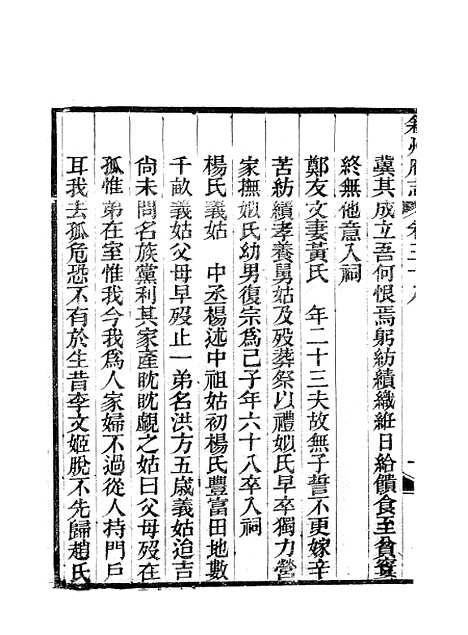 冀其成立吾何恨焉躬紡績織絍日給饋食至貧窶
終無他意入祠
鄭友文妻黃氏　年二十三夫故無子誓不更嫁辛
苦紡績孝養舅姑及歿葬祭以禮姒氏早卒獨力營
家撫姒氏幼男復宗爲己子年六十八卒入祠
楊氏義姑　中丞楊述中祖姑初楊氏豐富田地數
千畝義姑父母早歿止一弟名洪方五歲義姑迨吉
尙未問名族黨利其家產眈眈覷之姑曰父母歿在
孤惟弟在室惟我今我爲人家婦不過從人持門戶
耳我去孤危恐不有於生昔李文姬脫不先歸趙氏